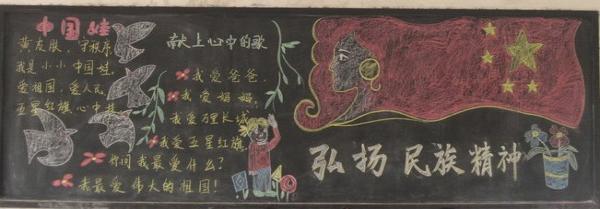 中国娃
黄皮肤，守秩序
我是小小中国娃，
爱祖国，爱人民
五星红旗心中挂
献上心中的歌
我爱爸爸，
我爱妈妈，
我爱万里长城
我爱五星红旗
你问我最爱什么？
我最爱伟大的祖国！
弘扬民族精神